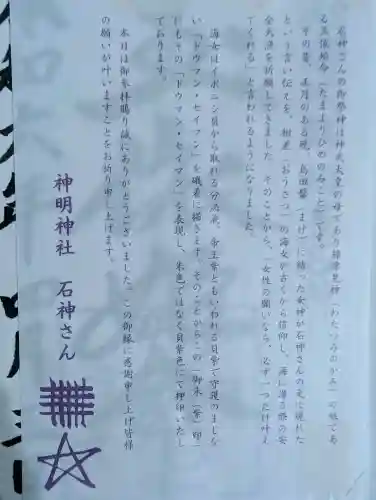 石神さんの御祭神は神武天皇の母であり綿津見神(わたつみのかみ)の娘であ
る玉依姫命(たまよりひめのみこと)です。
その昔、正月のある晩、島田髷(まげ)に結った女神が石神さんの元に現れた
という言い伝えを、相差(おうさつ)の海女が古くから信仰し、海に潜る際の安
全大漁を祈願してきました。そのことから、「女性の願いなら、必ず一つだけ叶え
てくれる」と言われるようになりました。
海女はイボニシ貝から取れる分泌液、帝王紫ともいわれる貝紫で守護のまじな
い「ドウマン・セイマン」を磯着に描きます。そのことからこの「御朱(紫)印」
にもその「ドウマン・セイマン」を表現し、朱色ではなく貝紫色にて押印いたし
ております。
本日は御参拝賜り誠にありがとうございました。この御縁に感謝申し上げ皆様
の願いが叶いますことをお祈り申し上げます。
神明神社 石神さん